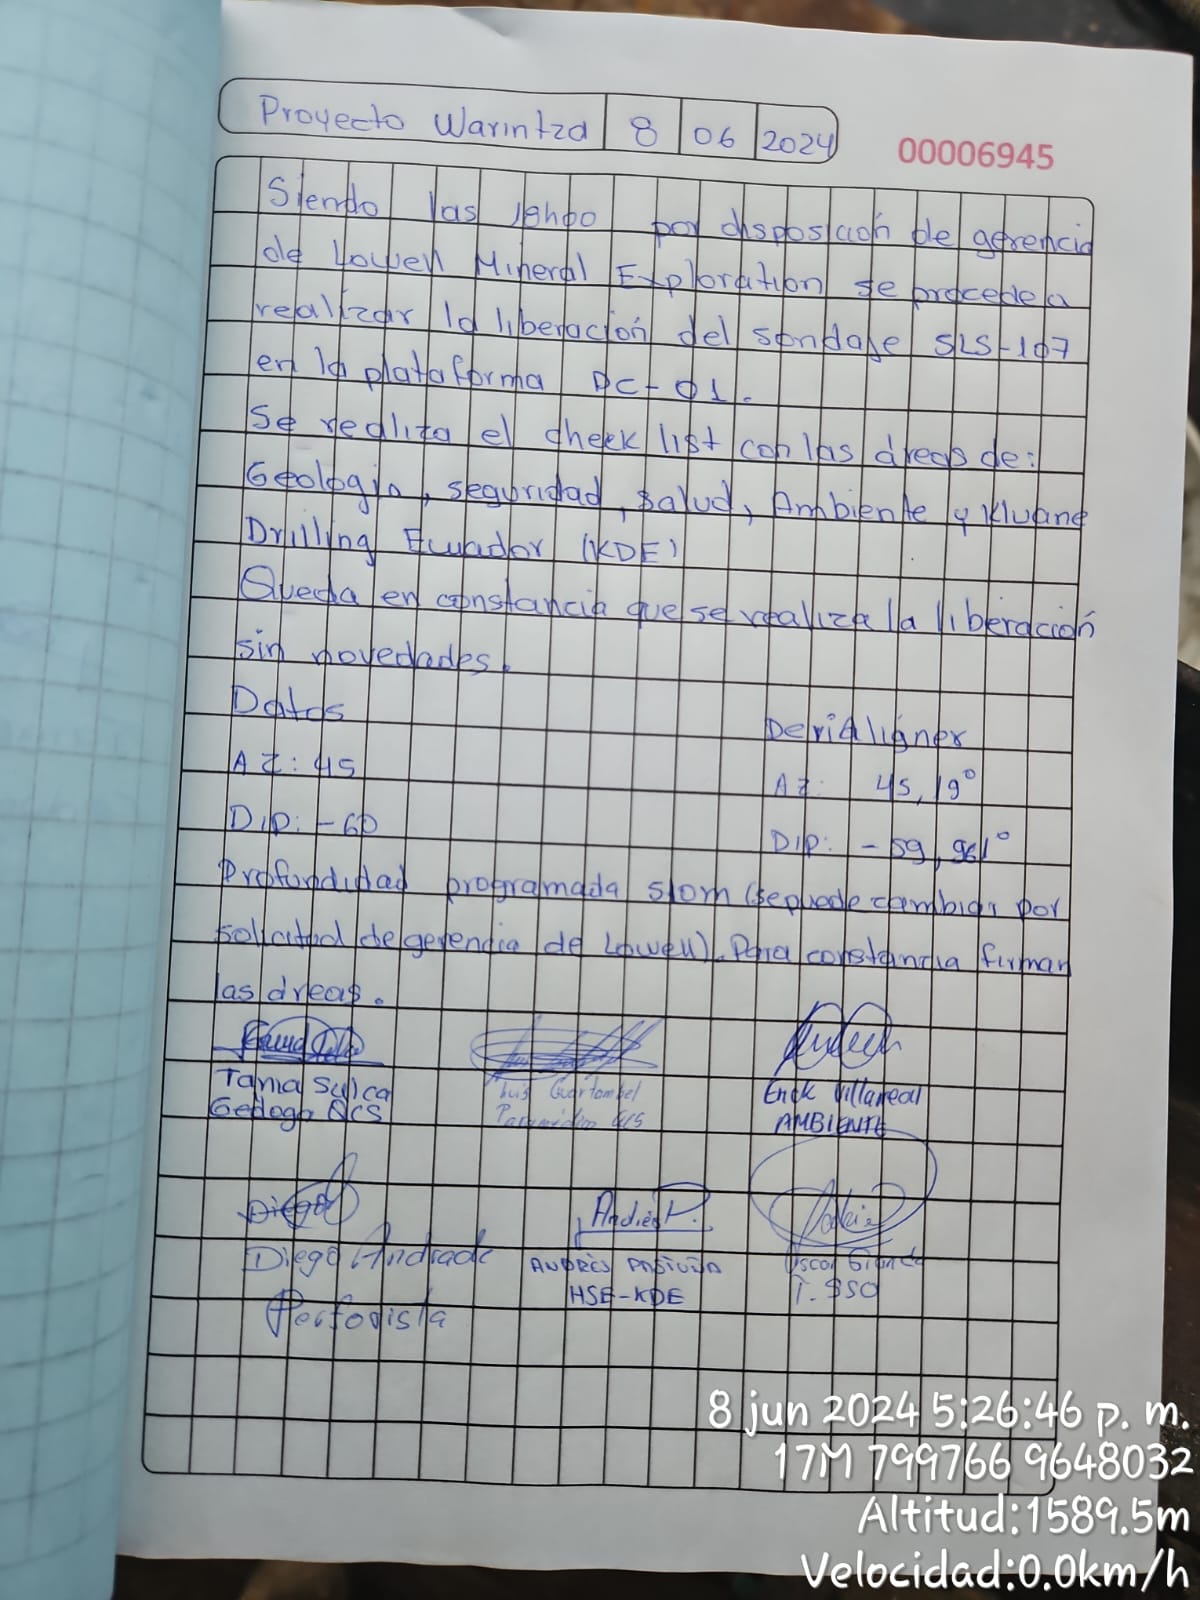 Proyecto Warintza 8 06 2024
00006945
Siendo las 18h00 por disposición de gerencia
de Lowell Mineral Exploration se procede a
realizar la liberación del sondaje SLS-107
en la plataforma PC-01.
Se realiza el check list con las áreas de:
Geología, seguridad, salud, Ambiente y Kluane
Drilling Ecuador (KDE)
Queda en constancia que se realiza la liberación
sin novedades.
Datos DeviAligner
AZ: 45 AZ: 45,19°
Dip: -60 DIP: -59,961°
Profundidad programada 510m (se puede cambiar por
solicitud de gerencia de Lowell). Para constancia firman
las áreas.
Tania Sulca Luis Guartambel Erick Villareal
Geóloga QCS AMBIENTE
Diego Andrés P.
Diego Andrade ANDRÈS Oscar
HSE-KDE T. SSO
Perforista
8 jun 2024 5:26:46 p. m.
17M 799766 9648032
Altitud:1589.5m
Velocidad:0.0km/h